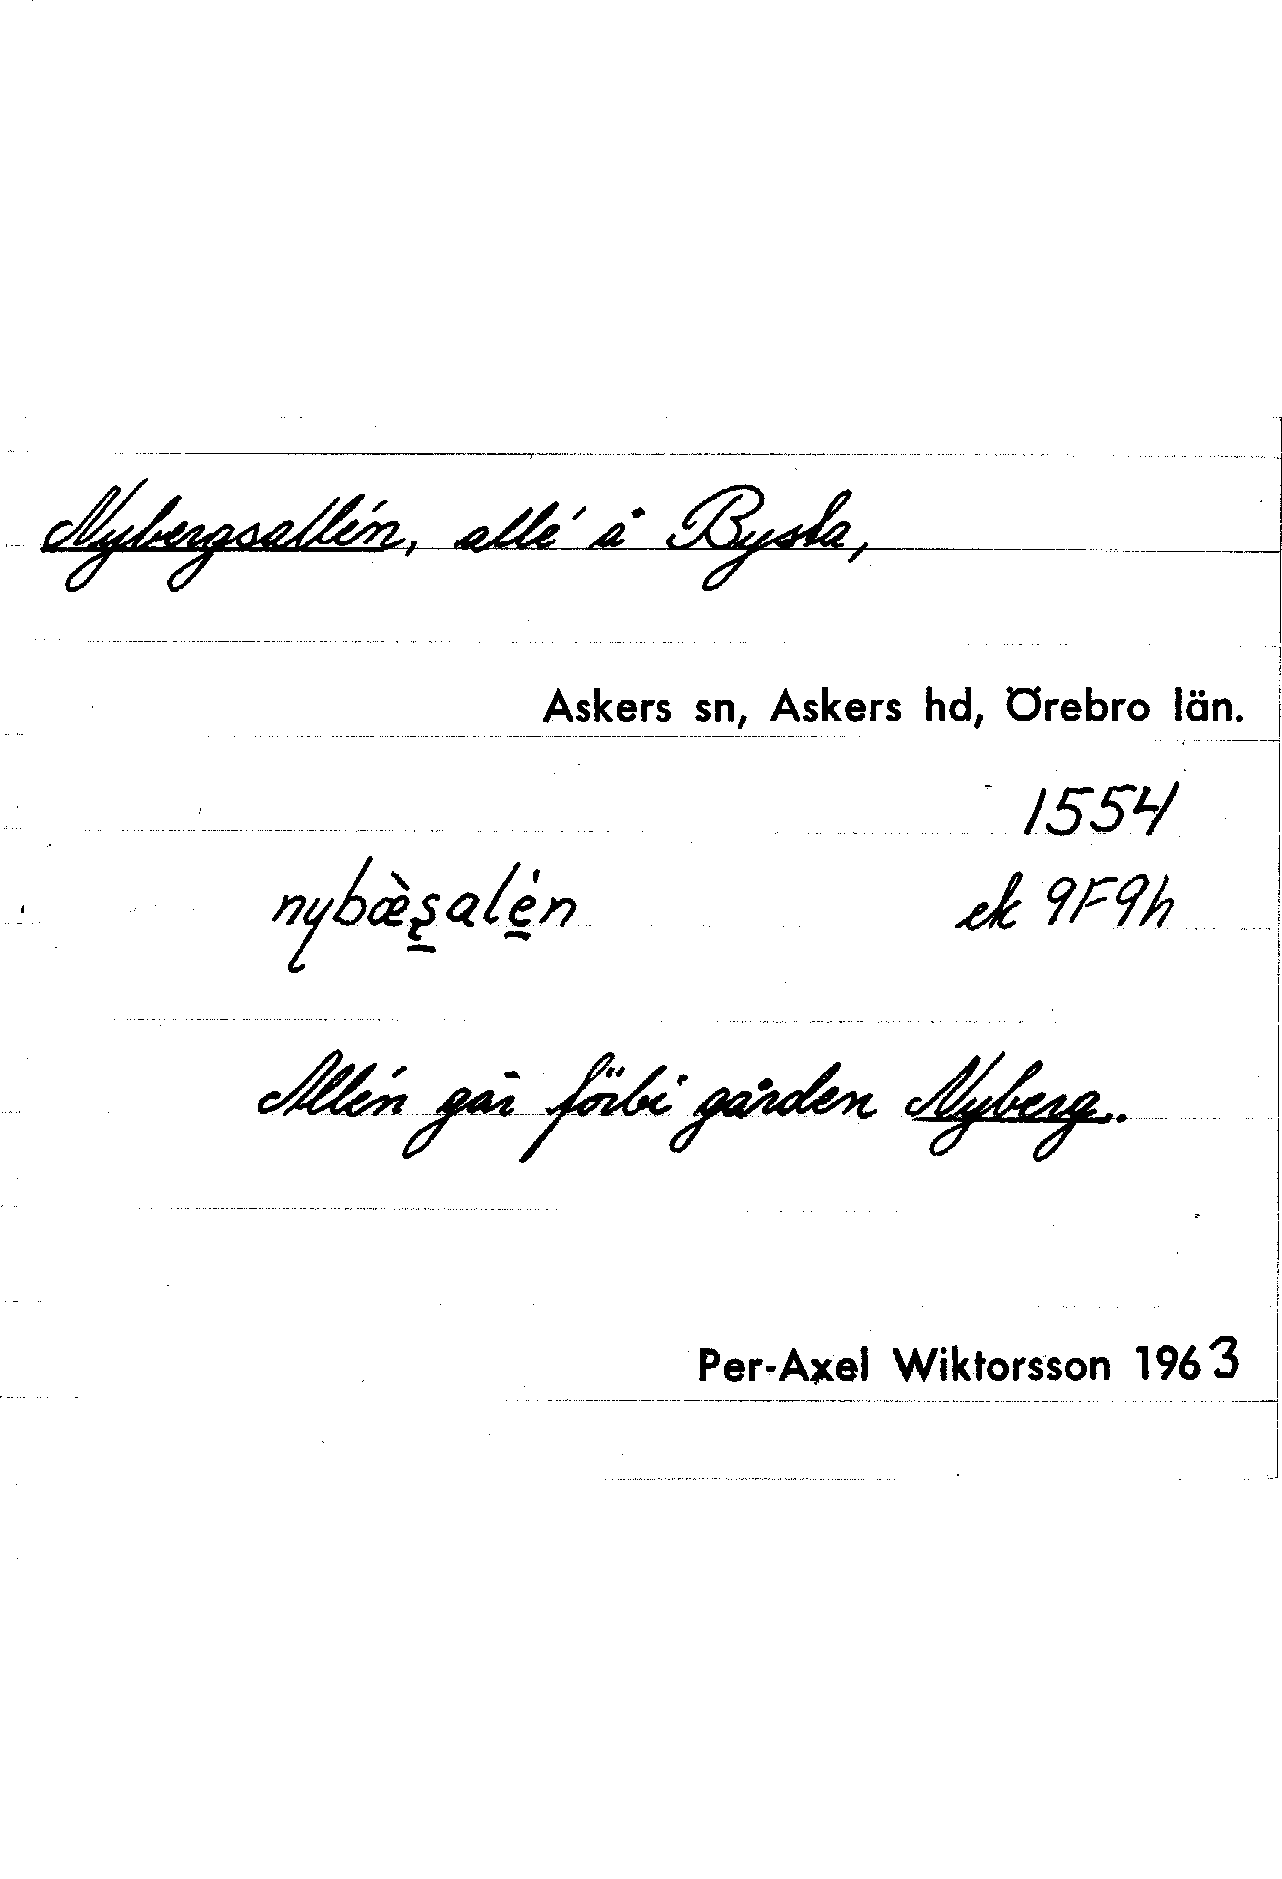 Nybergsallén, allé å Bysta,
Askers sn, Askers hd, Örebro län.
1554
nybæ̀s̱aḻe̱̒n ek 9F9h
Allén går förbi gården Nyberg.
Per-Axel Wiktorsson 1963